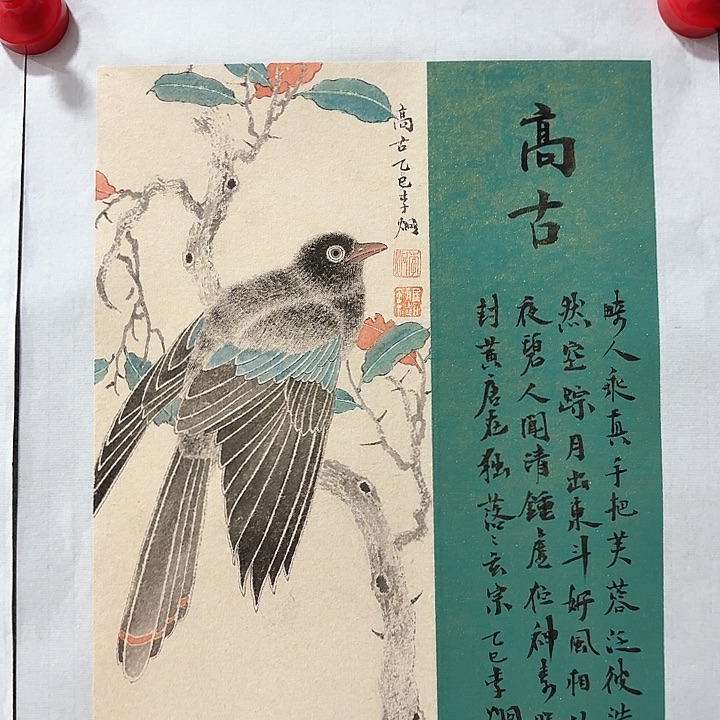 高古
畸人乘真手把芙蓉泛彼浩
然空踪月出東斗好風相
夜碧人聞清鍾虛佇神素
封黃唐在獨落〻玄宗乙巳李炯
高古乙巳李炯